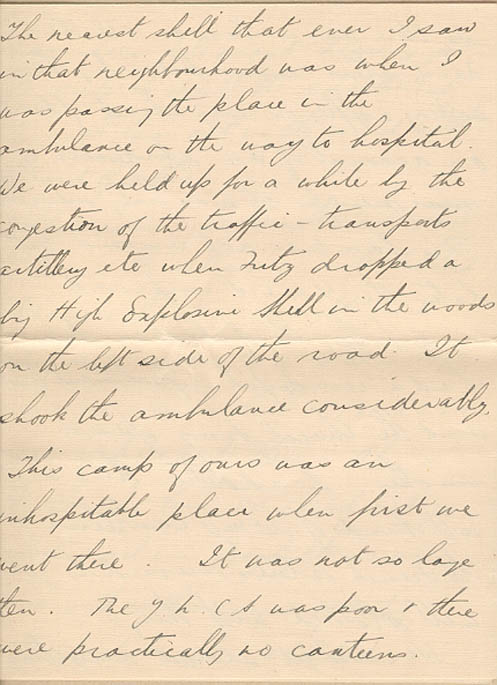 The nearest shell that ever I saw
in that neighbourhood was when I
was passing the place in the
ambulance on the way to hospital.
We were held up for a while by the
congestion of the traffic - transports
artillery etc when Fritz dropped a
big High Explosive Shell in the woods
on the left side of the road. It
shook the ambulance considerably.
This camp of ours was an
inhospitable place when first we
went there. It was not so large
then. The Y.M.C.A was poor & there
were practically no canteens.